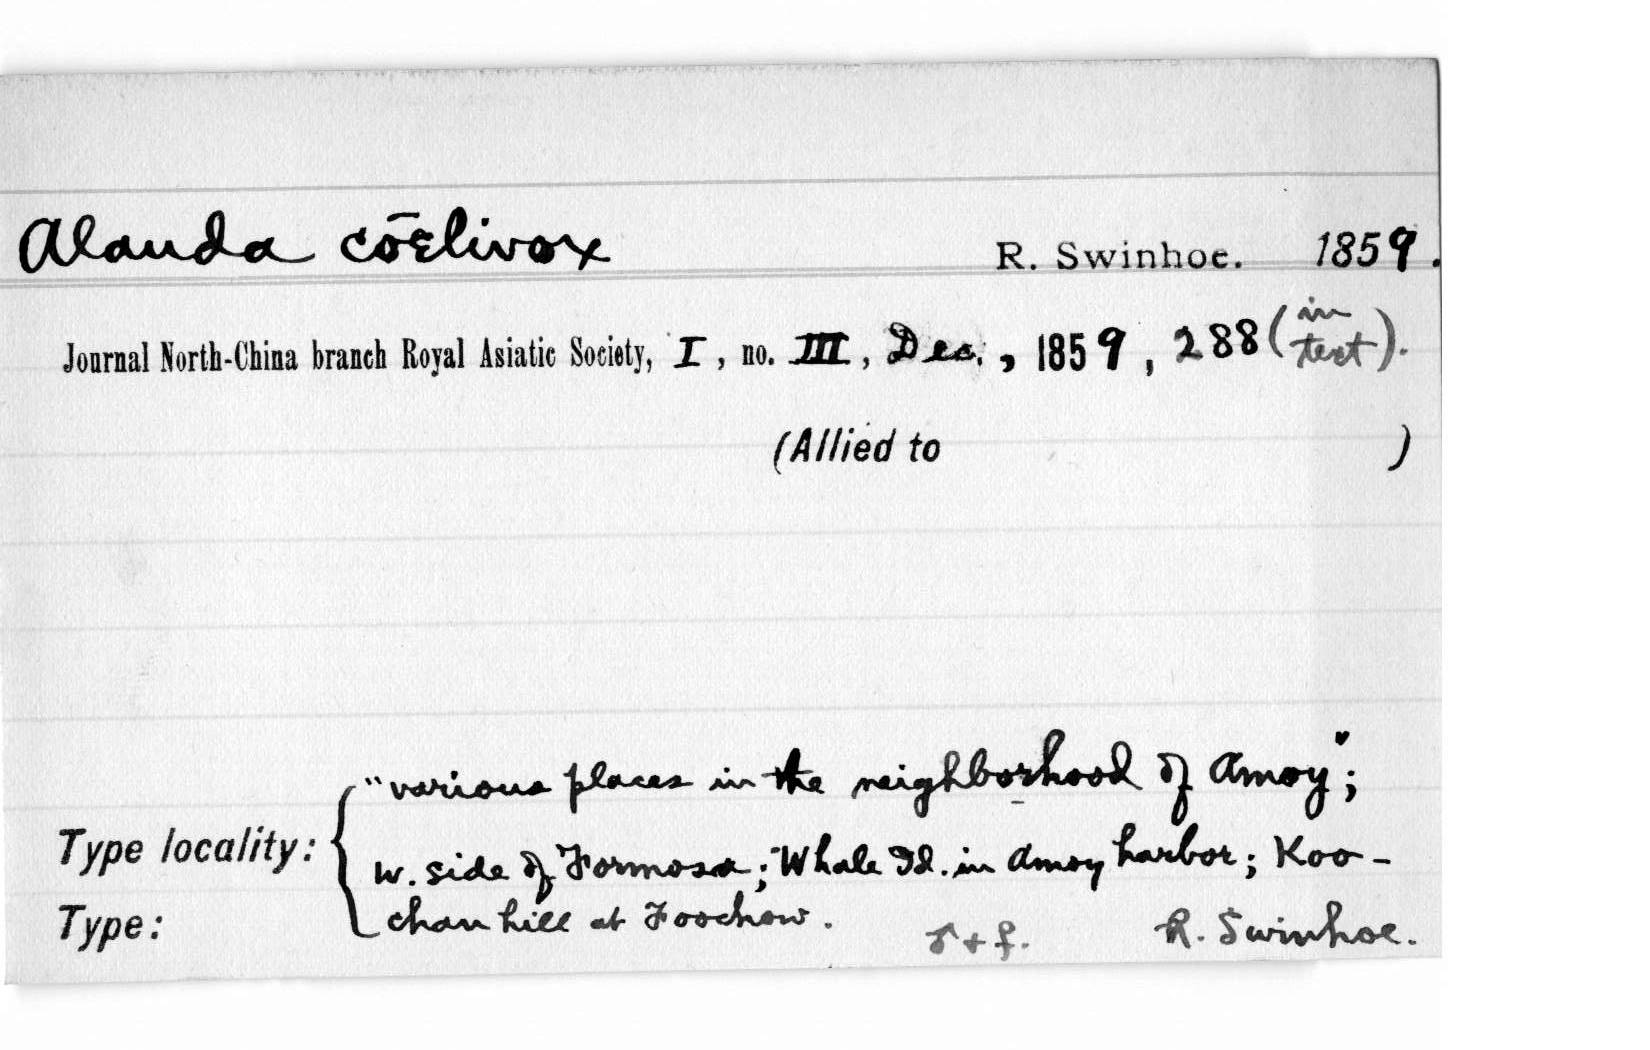 Alanda cōelivox R. Swinhoe. 1859.
Journal North-China branch Royal Asiatic Society, I, no. III, Dec., 1859, 288 (in text).
(Allied to )
"various places in the neighborhood of Amoy";
Type locality: w. side of Formosa; Whale Id. in Amoy harbor; Koo-
chan hill at Foochow.
Type: ♂ + ♀. R. Swinhoe.